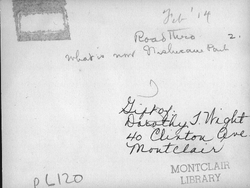 Feb '14
Road thro 2.
what is now Nishuane Park
Gift of
Dorothy T. Wight
40 Clinton Ave
Montclair
MONTCLAIR
LIBRARY
p L120